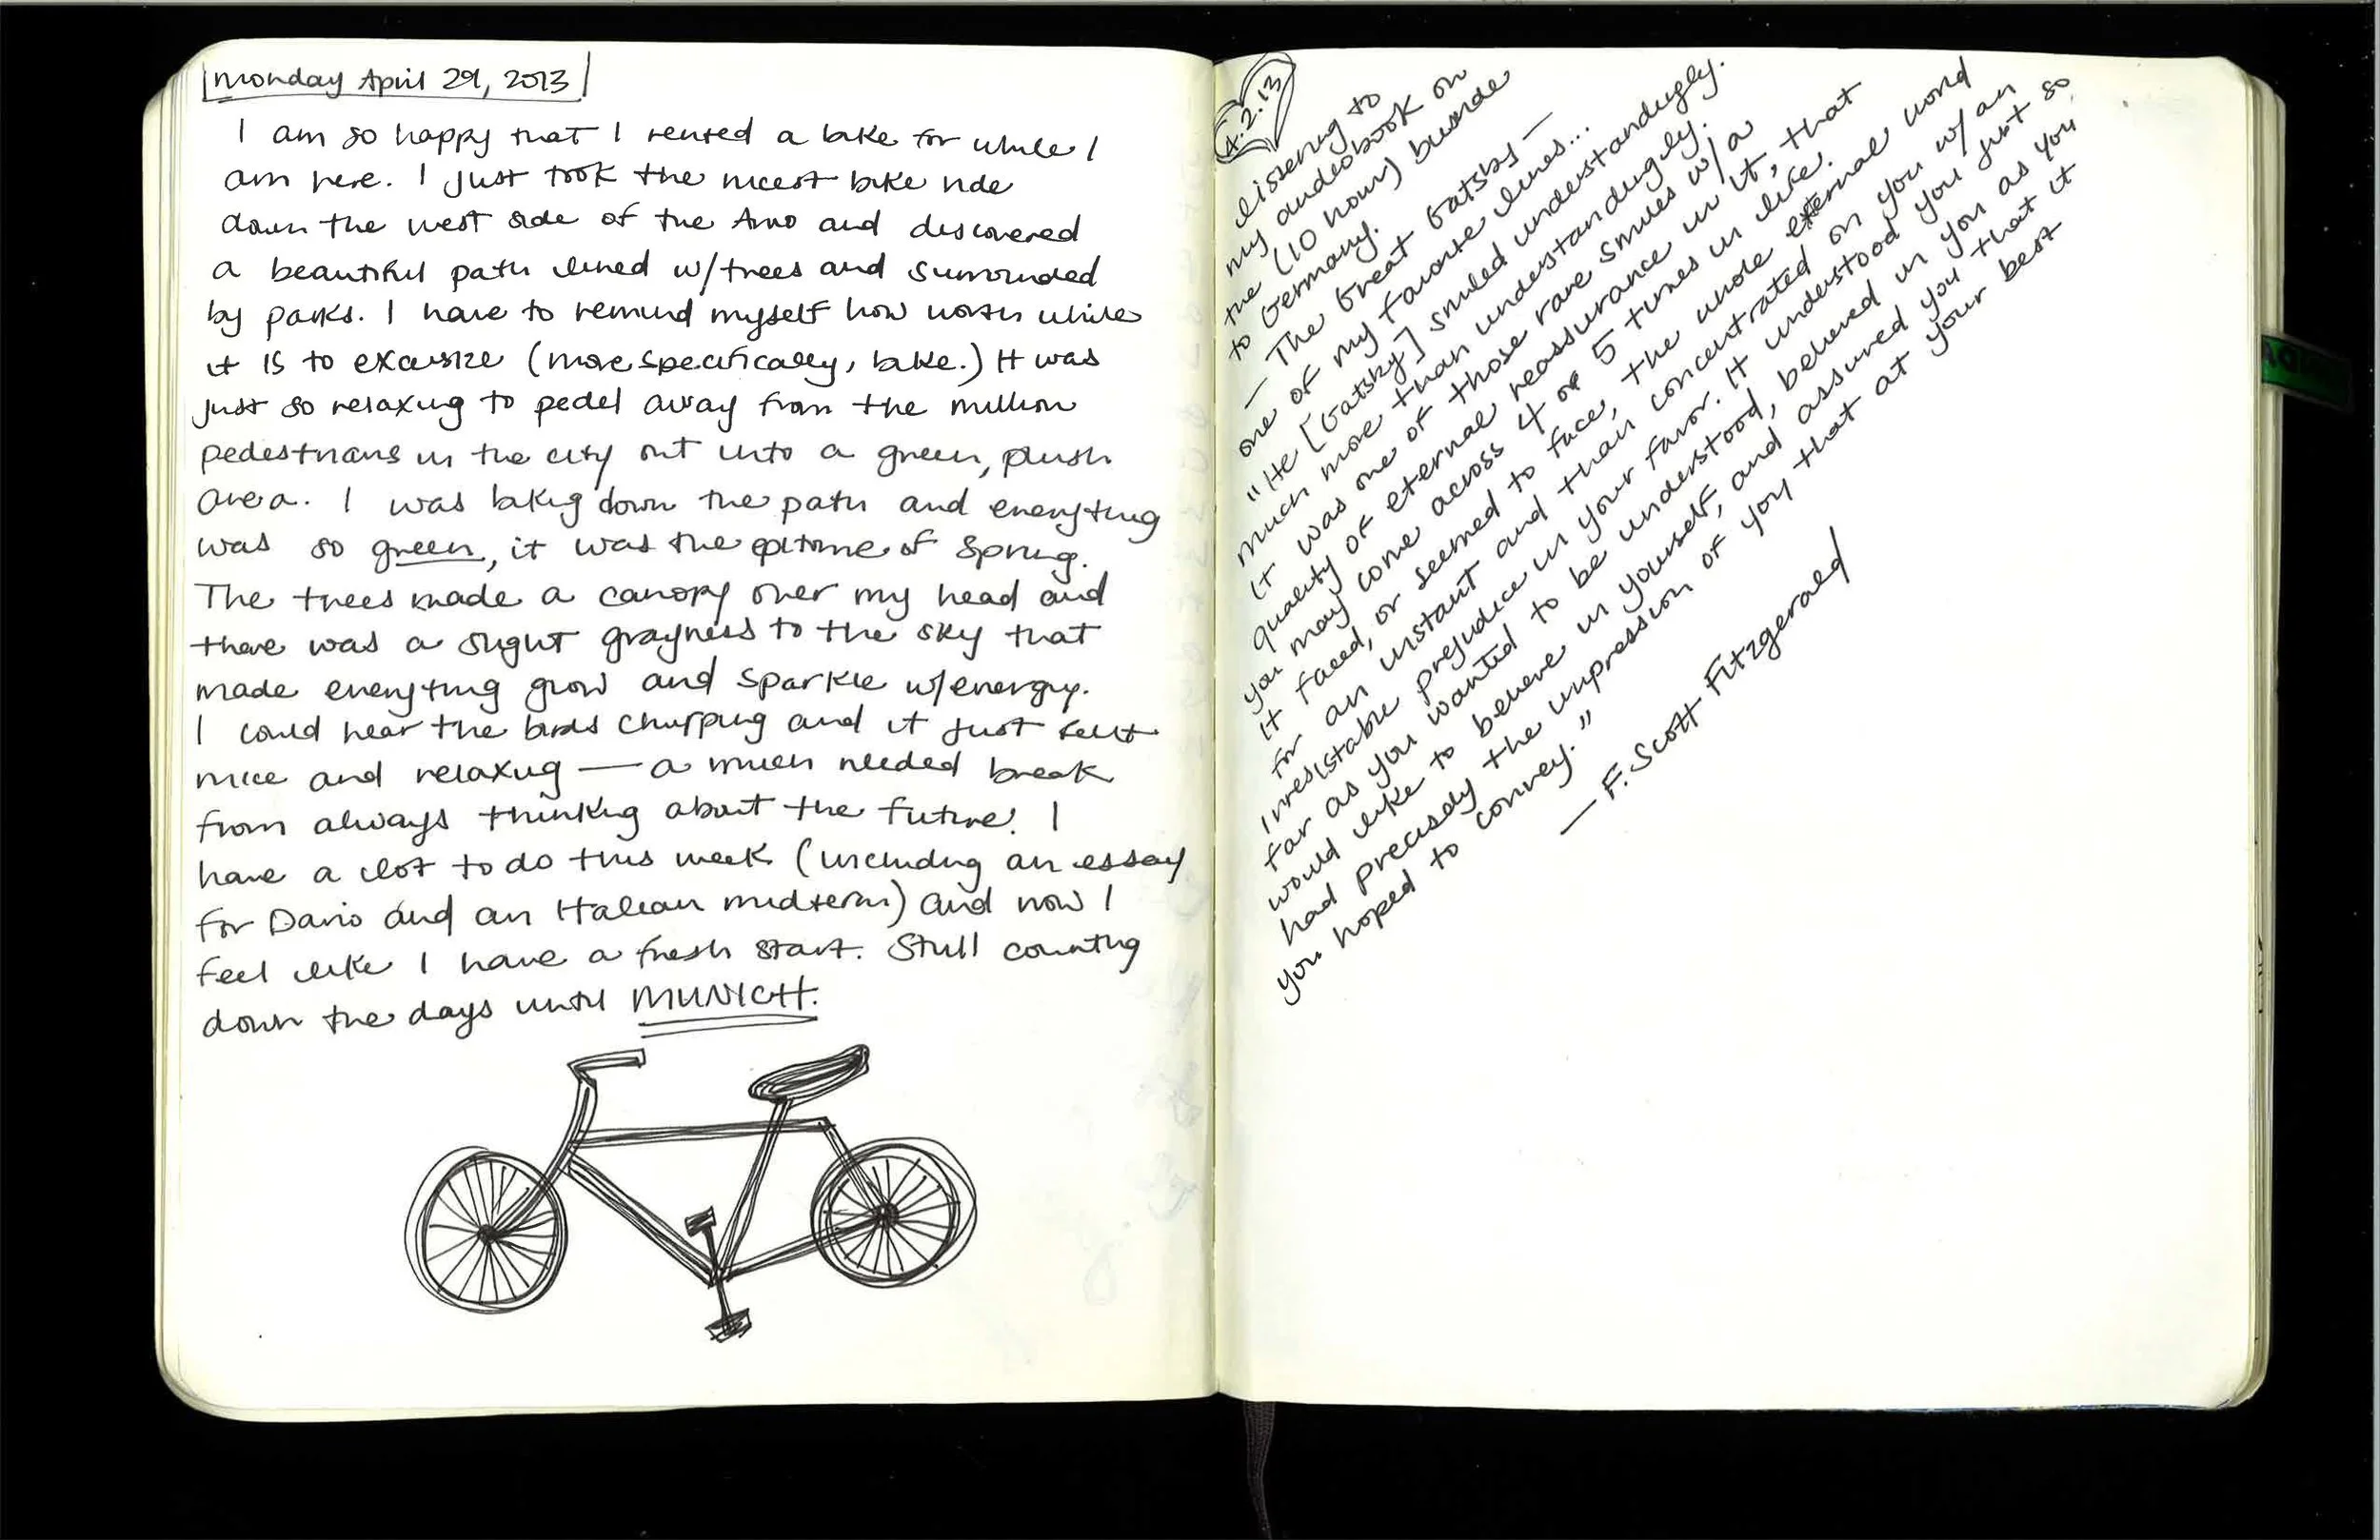 Monday April 29, 2013
I am so happy that I rented a bike for while I
am here. I just took the nicest bike ride
down the west side of the Arno and discovered
a beautiful path lined w/trees and surrounded
by parks. I have to remind myself how worth while
it is to excersize (more specifically, bike.) It was
just so relaxing to pedel away from the million
pedestrians in the city out into a green, plush
area. I was biking down the path and everything
was so green, it was the epitome of spring.
The trees made a canopy over my head and
there was a slight grayness to the sky that
made everything grow and sparkle w/energy.
I could hear the birds chirping and it just felt
nice and relaxing — a much needed break
from always thinking about the future! I
have a lot to do this week (including an essay
for Dario and an Italian midterm) and now I
feel like I have a fresh start. Still counting
down the days until MUNICH.
4.2.13
Listening to
my audiobook on
the (10 hour) busride
to Germany.
— The Great Gatsby —
one of my favorite lines...
"He [Gatsby] smiled understandingly.
much more than understandingly.
It was one of those rare smiles w/ a
quality of eternal reassurance in it, that
you may come across 4 or 5 times in life.
It faced, or seemed to face, the whole external world
for an instant and than concentrated on you w/ an
irresistable prejudice in your favor. It understood you just so
far as you wanted to be understood, believed in you as you
would like to believe in yourself, and assured you that it
had precisely the impression of you that at your best
you hoped to convey."
— F. Scott Fitzgerald